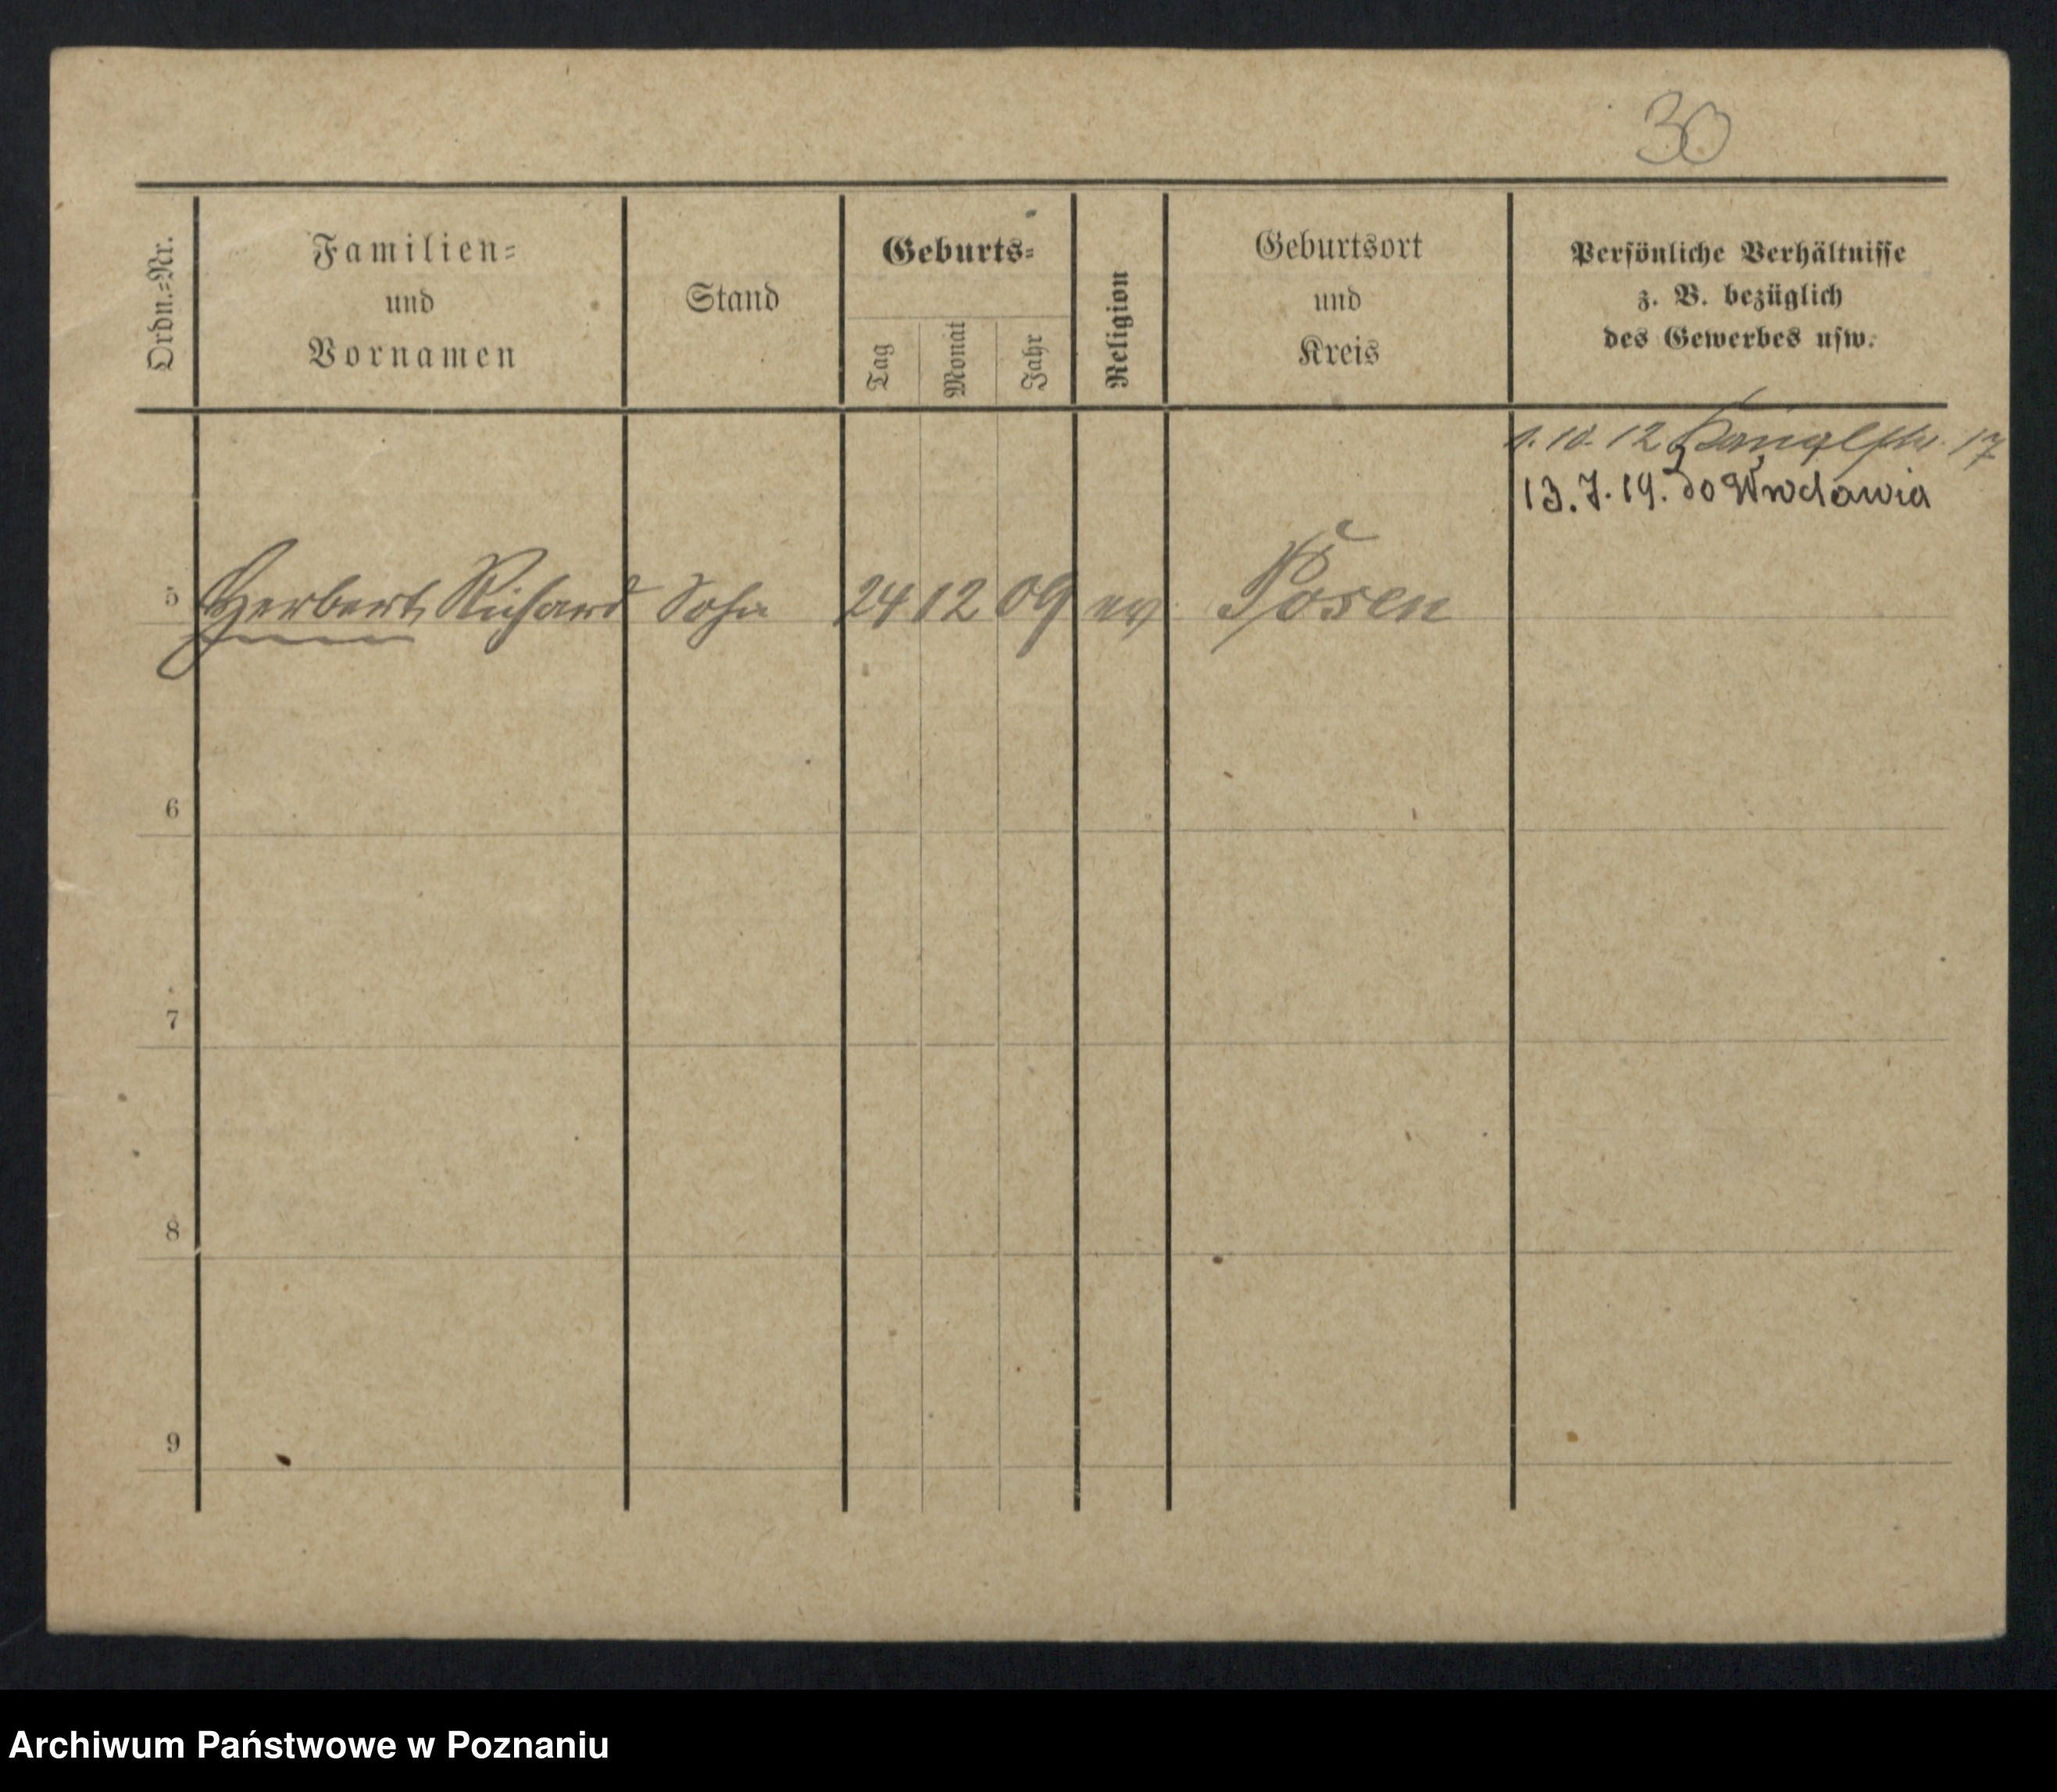 30
Ordn.=Nr.
Familien=
und
Vornamen
Stand
Geburts=
Tag
Monat
Jahr
Religion
Geburtsort
und
Kreis
Persönliche Verhältnisse
z. B. bezüglich
des Gewerbes usw.
1. 10. 12 17
13. 7. 19. do Wrocławia
5 Herbert Richard Sohn 24 12 09 ev. Posen
6
7
8
9
Archiwum Państwowe w Poznaniu